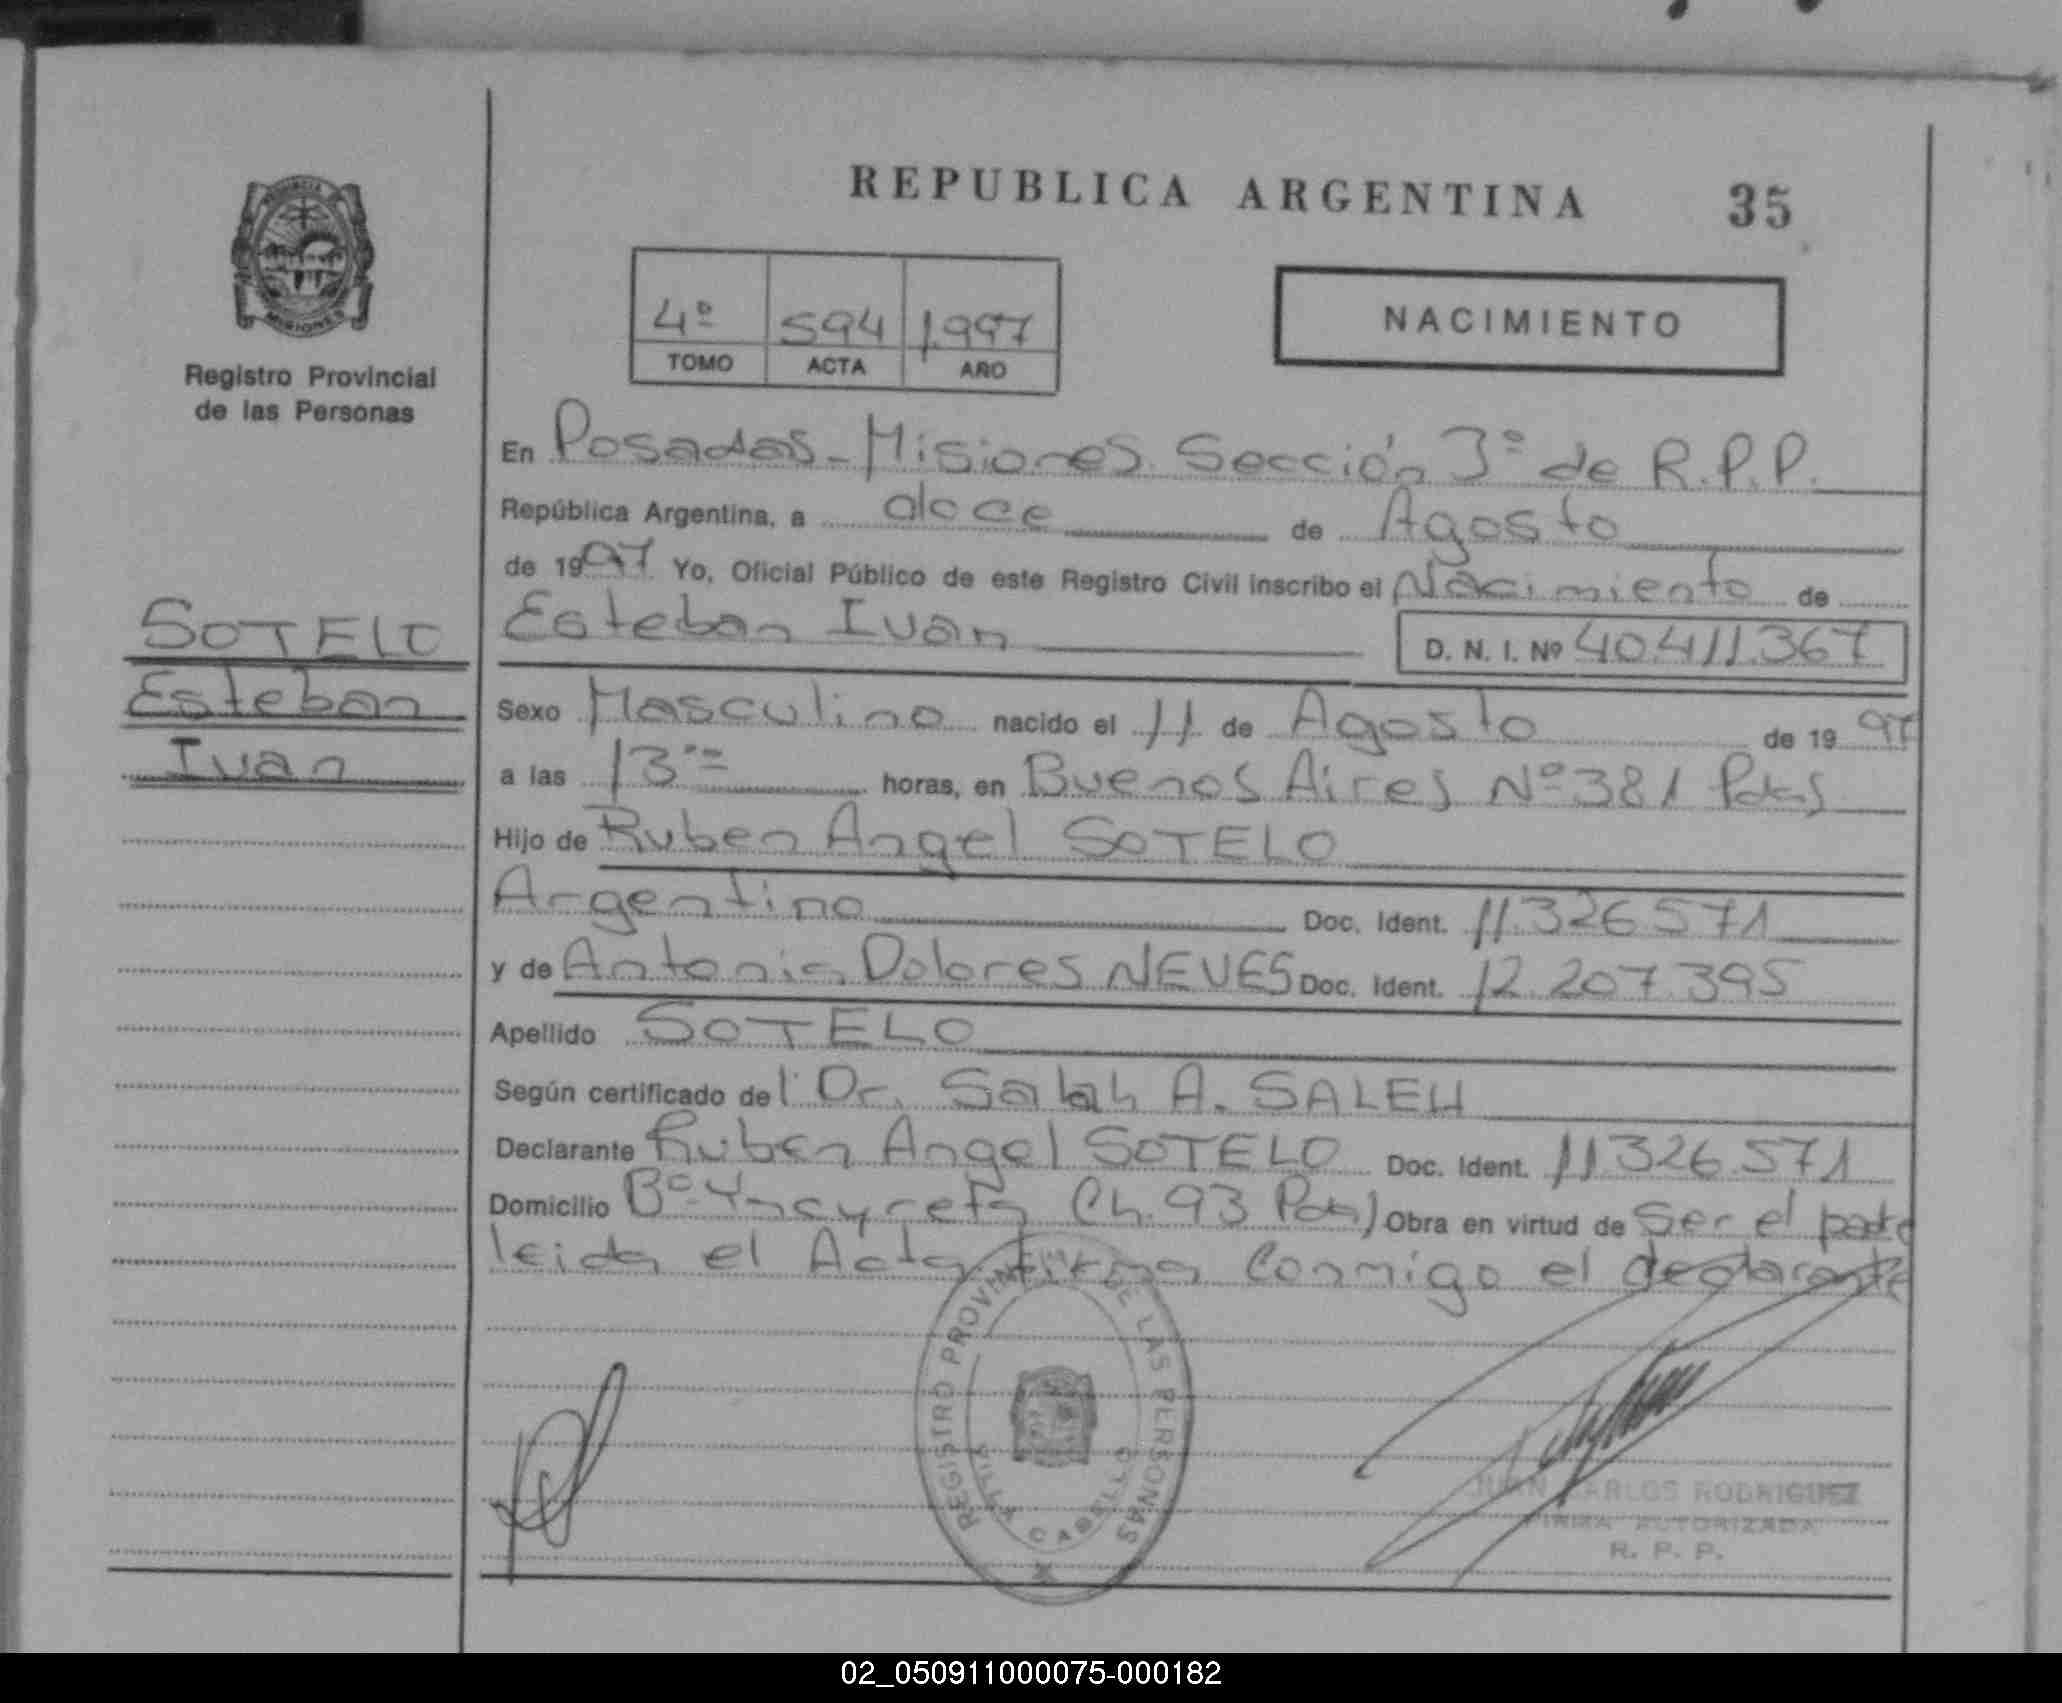 REPUBLICA ARGENTINA 35
PROVINCIA
MISIONES
Registro Provincial
de las Personas
4º 594 1.997
TOMO ACTA AÑO
NACIMIENTO
En Posadas - Misiones Sección 3º de R.P.P.
República Argentina, a doce de Agosto
de 1997 Yo, Oficial Público de este Registro Civil inscribo el Nacimiento de
SOTELO
Esteban
Ivan
Esteban Ivan D. N. I. Nº 40.411.367
Sexo Masculino nacido el 11 de Agosto de 1997
a las 13 horas, en Buenos Aires Nº 381 Pdas
Hijo de Ruben Angel SOTELO
Argentino Doc. Ident. 11.326.571
y de Antonia Dolores NEVES Doc. Ident. 12.207.395
Apellido SOTELO
Según certificado del Dr. Salah A. SALEH
Declarante Ruben Angel SOTELO Doc. Ident. 11.326.571
Domicilio Bº Yacyreta Ch. 93 Pdas) Obra en virtud de ser el padre
leida el Acta firma conmigo el declarante
REGISTRO PROVINCIAL DE LAS PERSONAS
VILLA CABELLO
JUAN CARLOS RODRIGUEZ
FIRMA AUTORIZADA
R. P. P.
02_050911000075-000182